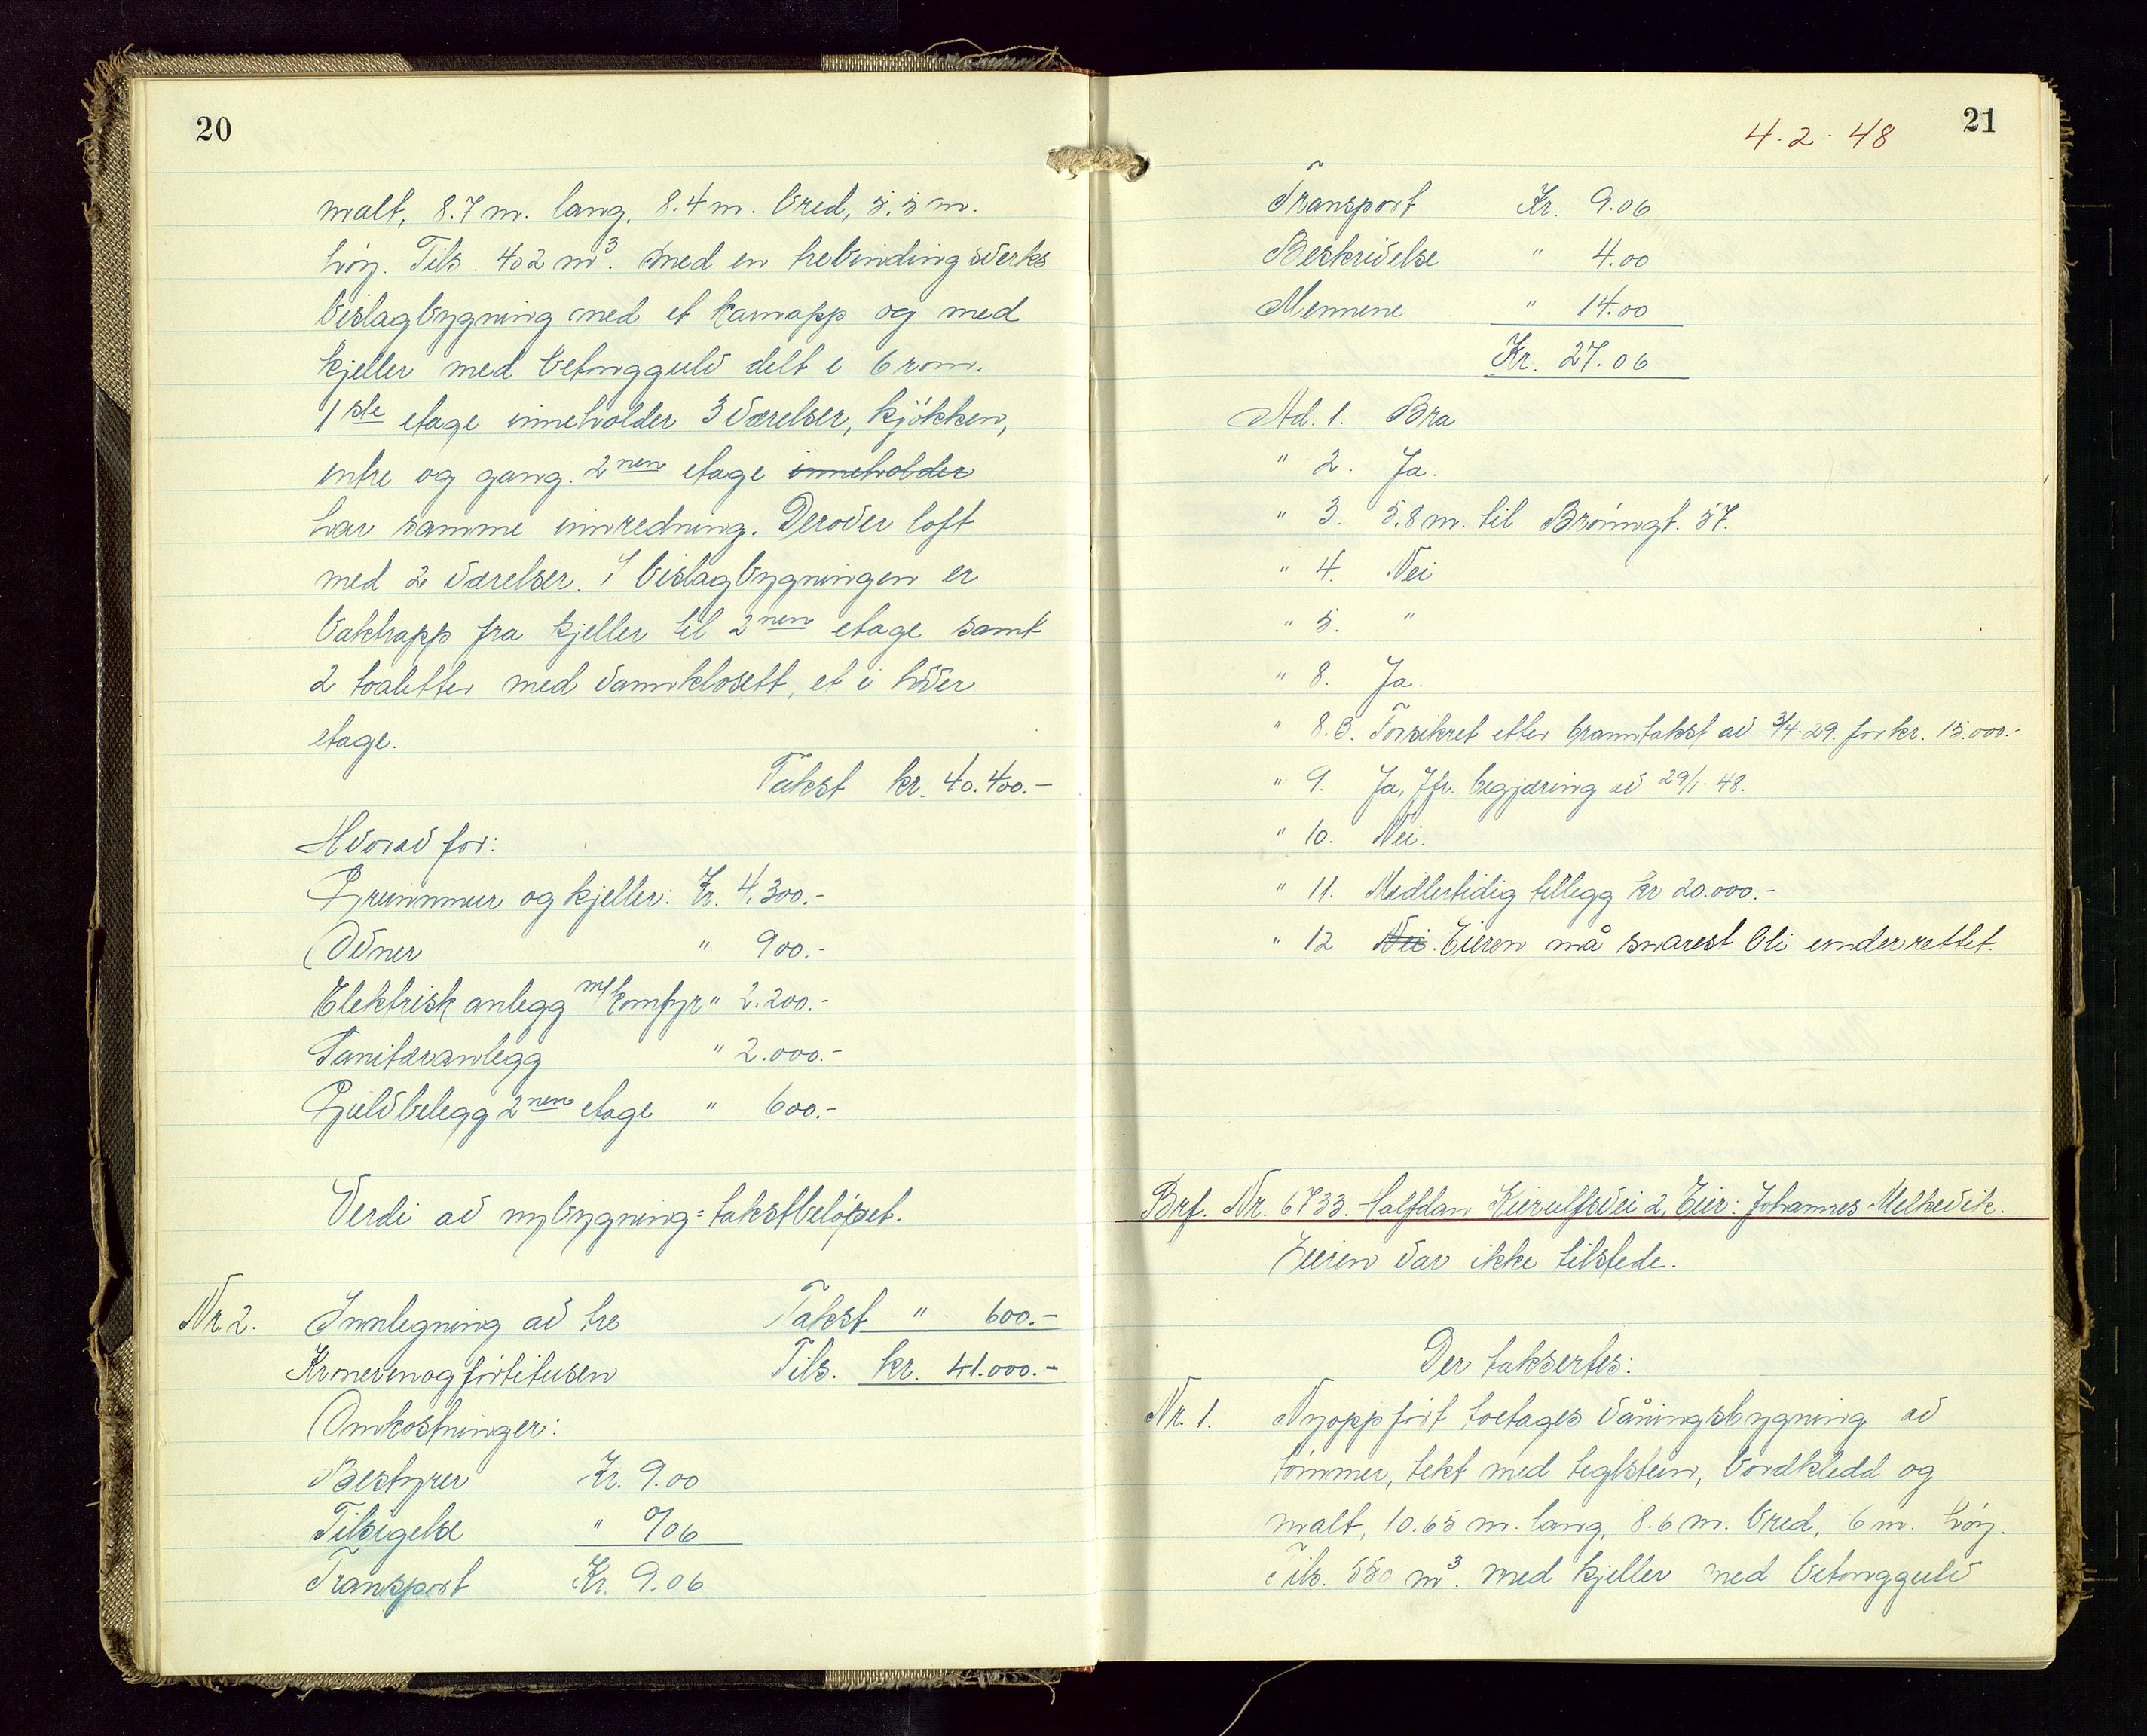 20
malt, 8.7 m. lang, 8.4 m. bred, 5.5 m.
höy. Tils. 402 m³. Med en trebindingsverks
bislagbygning med et karnapp og med
kjeller med betonggulv delt i 6 rom.
1ste etage inneholder 3 værelser, kjökken,
entre og gang. 2nen etage inneholder
har samme innredning. Derover loft
med 2 værelser. I bislagbygningen er
baktrapp fra kjeller til 2nen etage samt
2 toaletter med vannklosett, et i hver
etage.
Takst kr. 40.400.-
Hvorav for:
Grunnmur og kjeller: Kr. 4.300.-
Ovner " 900.-
Elektrisk anlegg m/komfyr " 2.200.-
Sanitæranlegg " 2.000.-
Gulvbelegg 2nen etage " 600.-
Verdi av nybygning = takstbelöpet.
Nr. 2. Innlegning av tre Takst " 600.-
Kronerenogförtitusen Tils. kr. 41.000.-
Omkostninger:
Bestyrer Kr. 9.00
Tilsigelse " 0/06
Transport Kr. 9.06
21
4.2.48
Transport Kr. 9.06
Beskrivelse " 4.00
Mennene " 14.00
Kr. 27.06
Ad. 1. Bra
" 2. Ja.
" 3. 5.8 m. til Brönngt. 57.
" 4. Nei
" 5. "
" 8. Ja.
" 8.B. Forsikret etter branntakst av 3/4.29. for kr. 15.000.-
" 9. Ja, Jfr. begjæring av 29/1.48.
" 10. Nei.
" 11. Midlertidig tillegg kr 20.000.-
" 12 Nei. Eieren må snarest bli underrettet.
Brf. Nr. 6733. Halfdan Kierulfsvei 2, Eier: Johannes Melkevik.
Eieren var ikke tilstede.
Der taksertes:
Nr. 1. Nyoppfört toetages våningsbygning av
tömmer, tekt med teglstein, bordkledd og
malt, 10.65 m. lang, 8.6 m. bred, 6 m. höy.
Tils. 550 m³. med kjeller med betonggulv